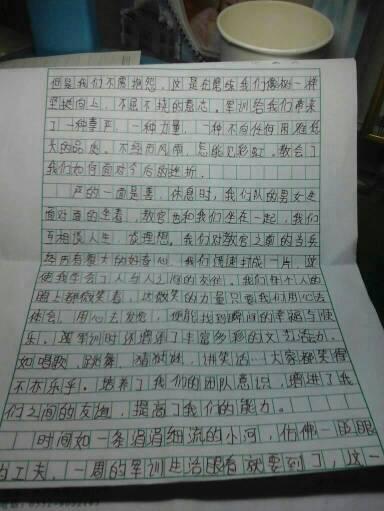 但是我们不需抱怨，这是在磨练我们像树一样
坚挺向上，不屈不挠的意志。军训给我们带来
了一种尊严，一种力量，一种不向任何困难低
头的品质。不经历风雨，怎能见彩虹。教会了
我们如何面对今后的挫折。
严的一面是喜，休息时，我们队的男女生
面对面的坐着，教官也和我们坐在一起，我们
互相谈人生，谈理想。我们对教官之前的当兵
经历有着大的好奇心，我们很快打成一片，这
使我学会了人与人之间的友谊。我们每个人的
脸上都微笑着，这微笑的力量只要我们用心去
体会，用心去发现，便能找到瞬间的幸福与快
乐。现军训时还增添了丰富多彩的文艺活动，
如唱歌，跳舞，猜谜，讲笑话…大家都笑得
不亦乐乎。培养了我们的团队意识，增进了我
们之间的友谊，提高了我们的能力。
时间如一条涓涓细流的小河，仿佛一眨眼
的工夫，一周的军训生活眼看就要到了，这一